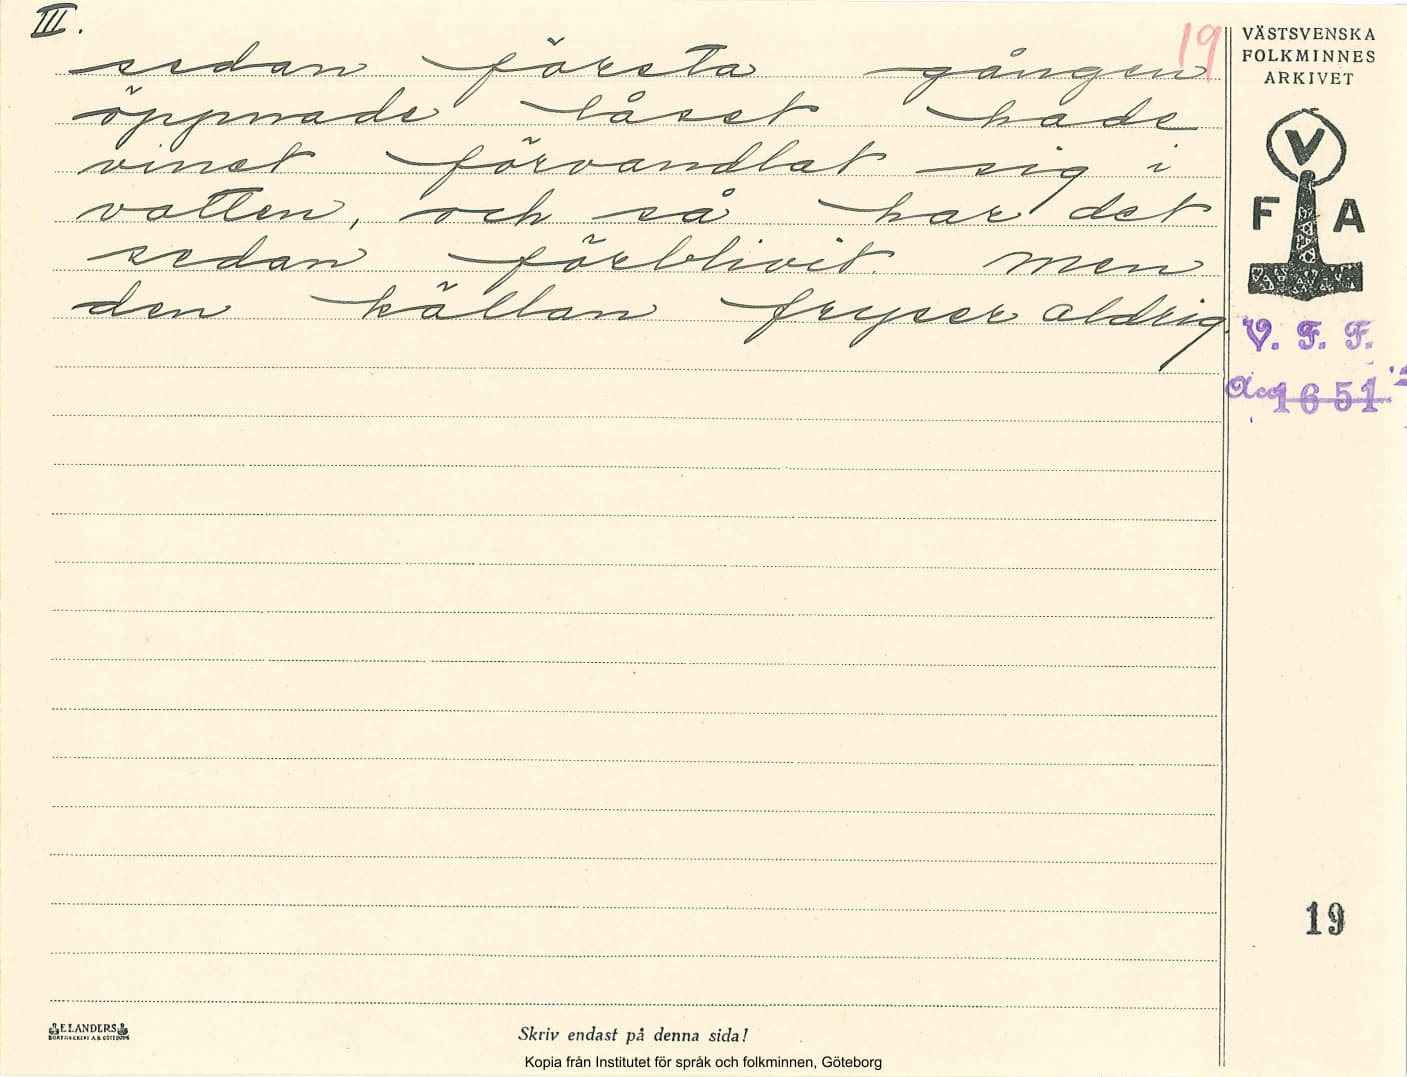 III.
19
sedan första gången
öppnade låset hade
vinet förvandlat sig i
vatten, och så har det
sedan förblivit. Men
den källan fryser aldrig.
VÄSTSVENSKA
FOLKMINNES
ARKIVET
V
F A
V. F. F.
Acc 1651
19
ELANDERS
Skriv endast på denna sida!
Kopia från Institutet för språk och folkminnen, Göteborg